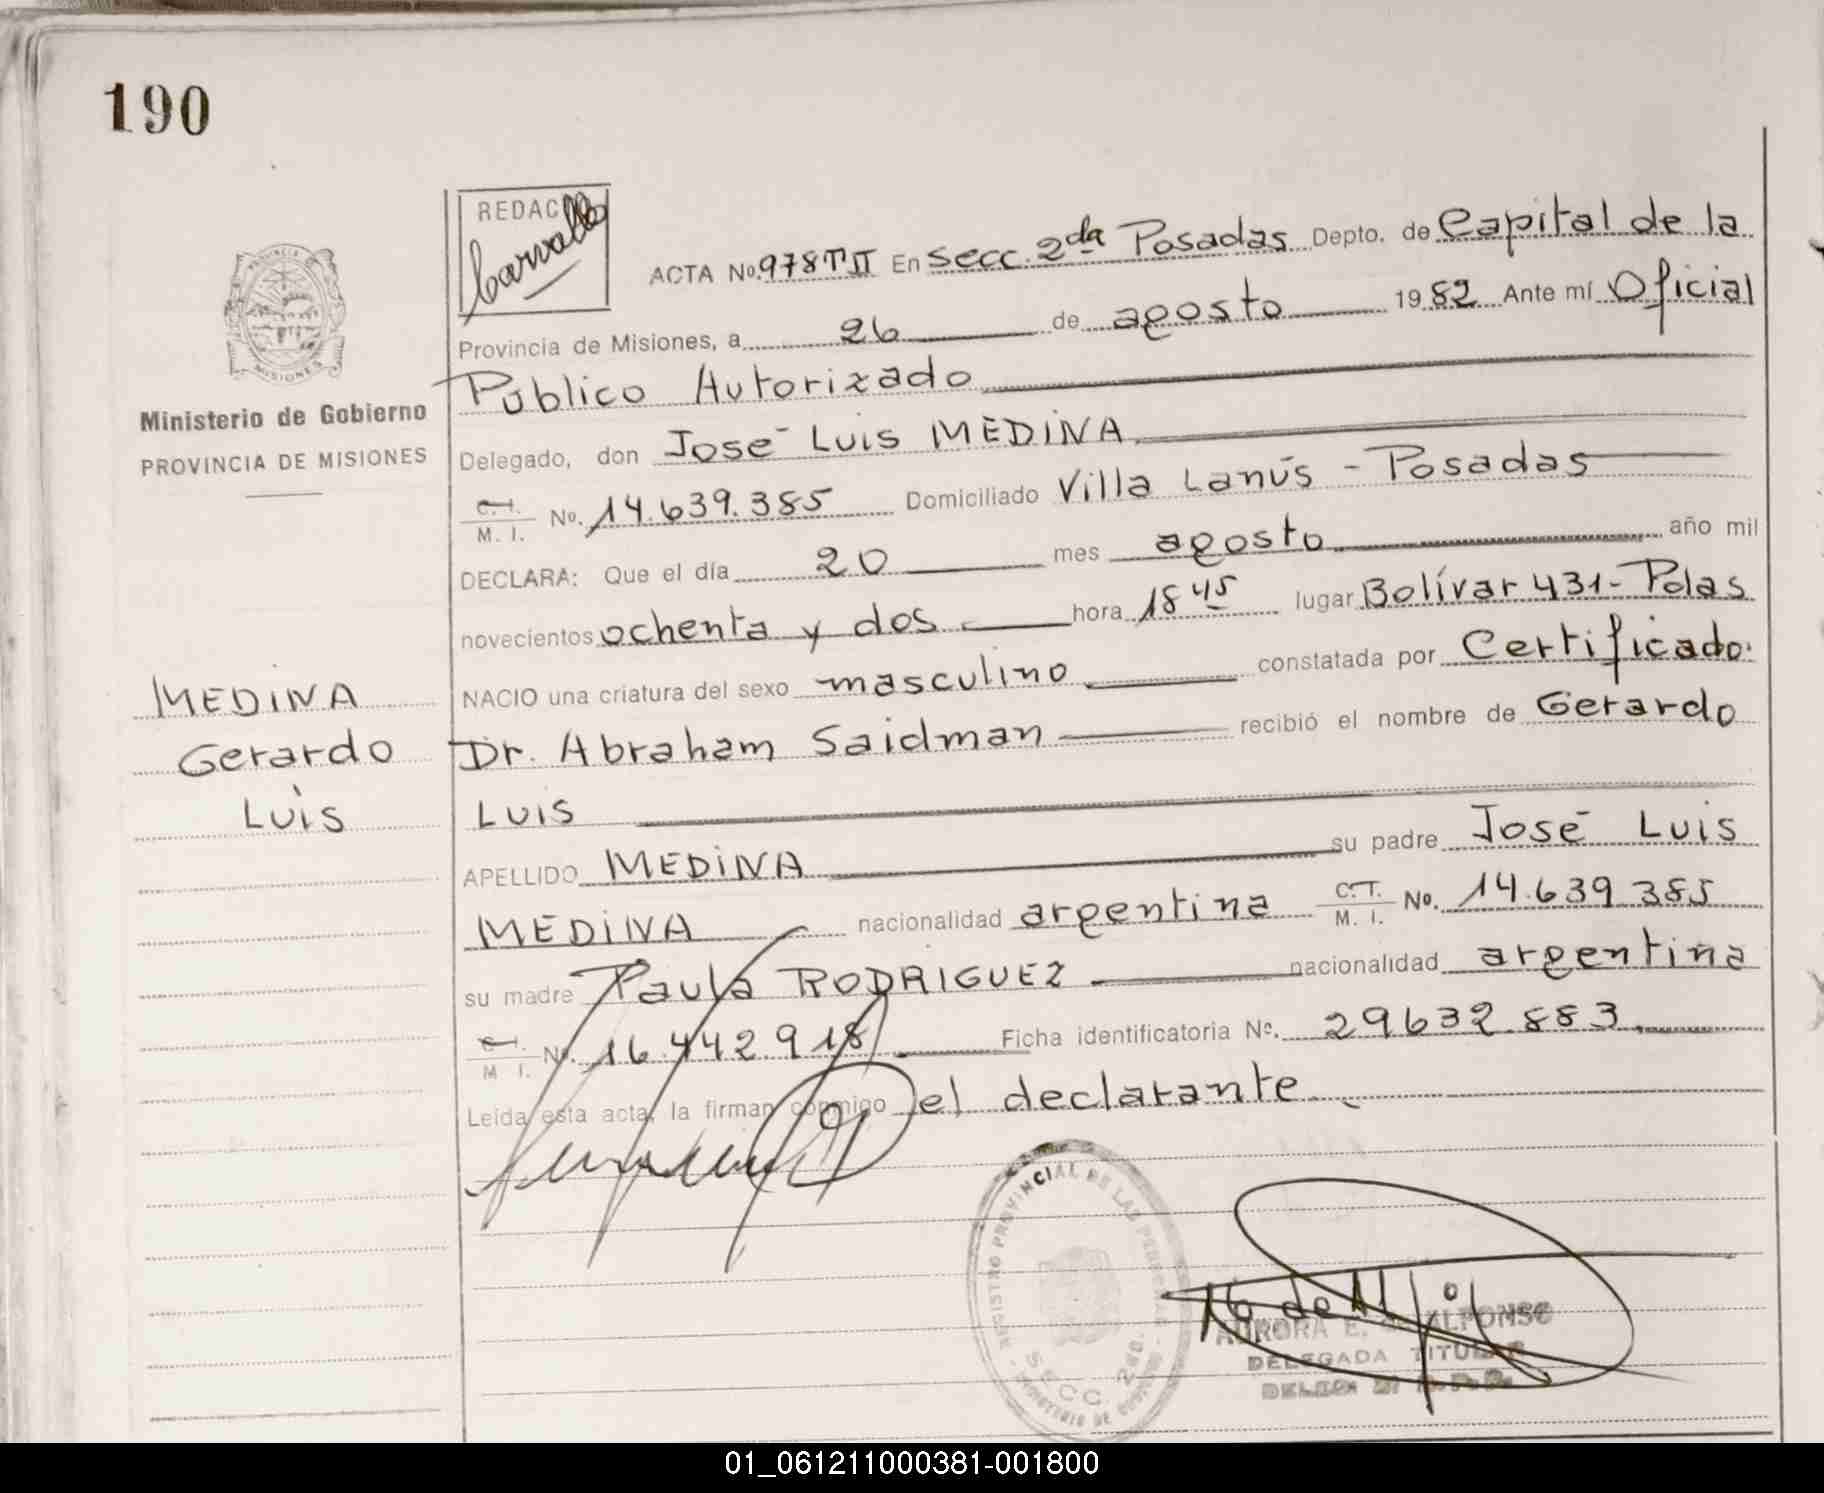 190
REDAC
Carvallo
ACTA No. 978 T II En Secc. 2da Posadas Depto. de Capital de la
Provincia de Misiones, a 26 de agosto 1982 Ante mí Oficial
Público Autorizado
Ministerio de Gobierno
PROVINCIA DE MISIONES
Delegado, don José Luis MEDINA
C.I. M. I. No. 14.639.385 Domiciliado Villa Lanús - Posadas
DECLARA: Que el día 20 mes agosto año mil
novecientos ochenta y dos hora 18 45 lugar Bolívar 431 - Pdas
NACIO una criatura del sexo masculino constatada por Certificado
Dr. Abraham Saidman recibió el nombre de Gerardo
Luis
MEDINA
Gerardo
Luis
APELLIDO MEDINA su padre José Luis
MEDINA nacionalidad argentina C.I. M. I. No. 14.639.385
su madre Paula RODRIGUEZ nacionalidad argentina
C.I. M I. No. 16.442.918 Ficha identificatoria No. 29632.883
Leída esta acta, la firman conmigo el declarante
REGISTRO PROVINCIAL DE LAS PERSONAS
SECC. 2da.
MINISTERIO DE GOBIERNO
AURORA E. ALFONSO
DELEGADA TITULAR
01_061211000381-001800